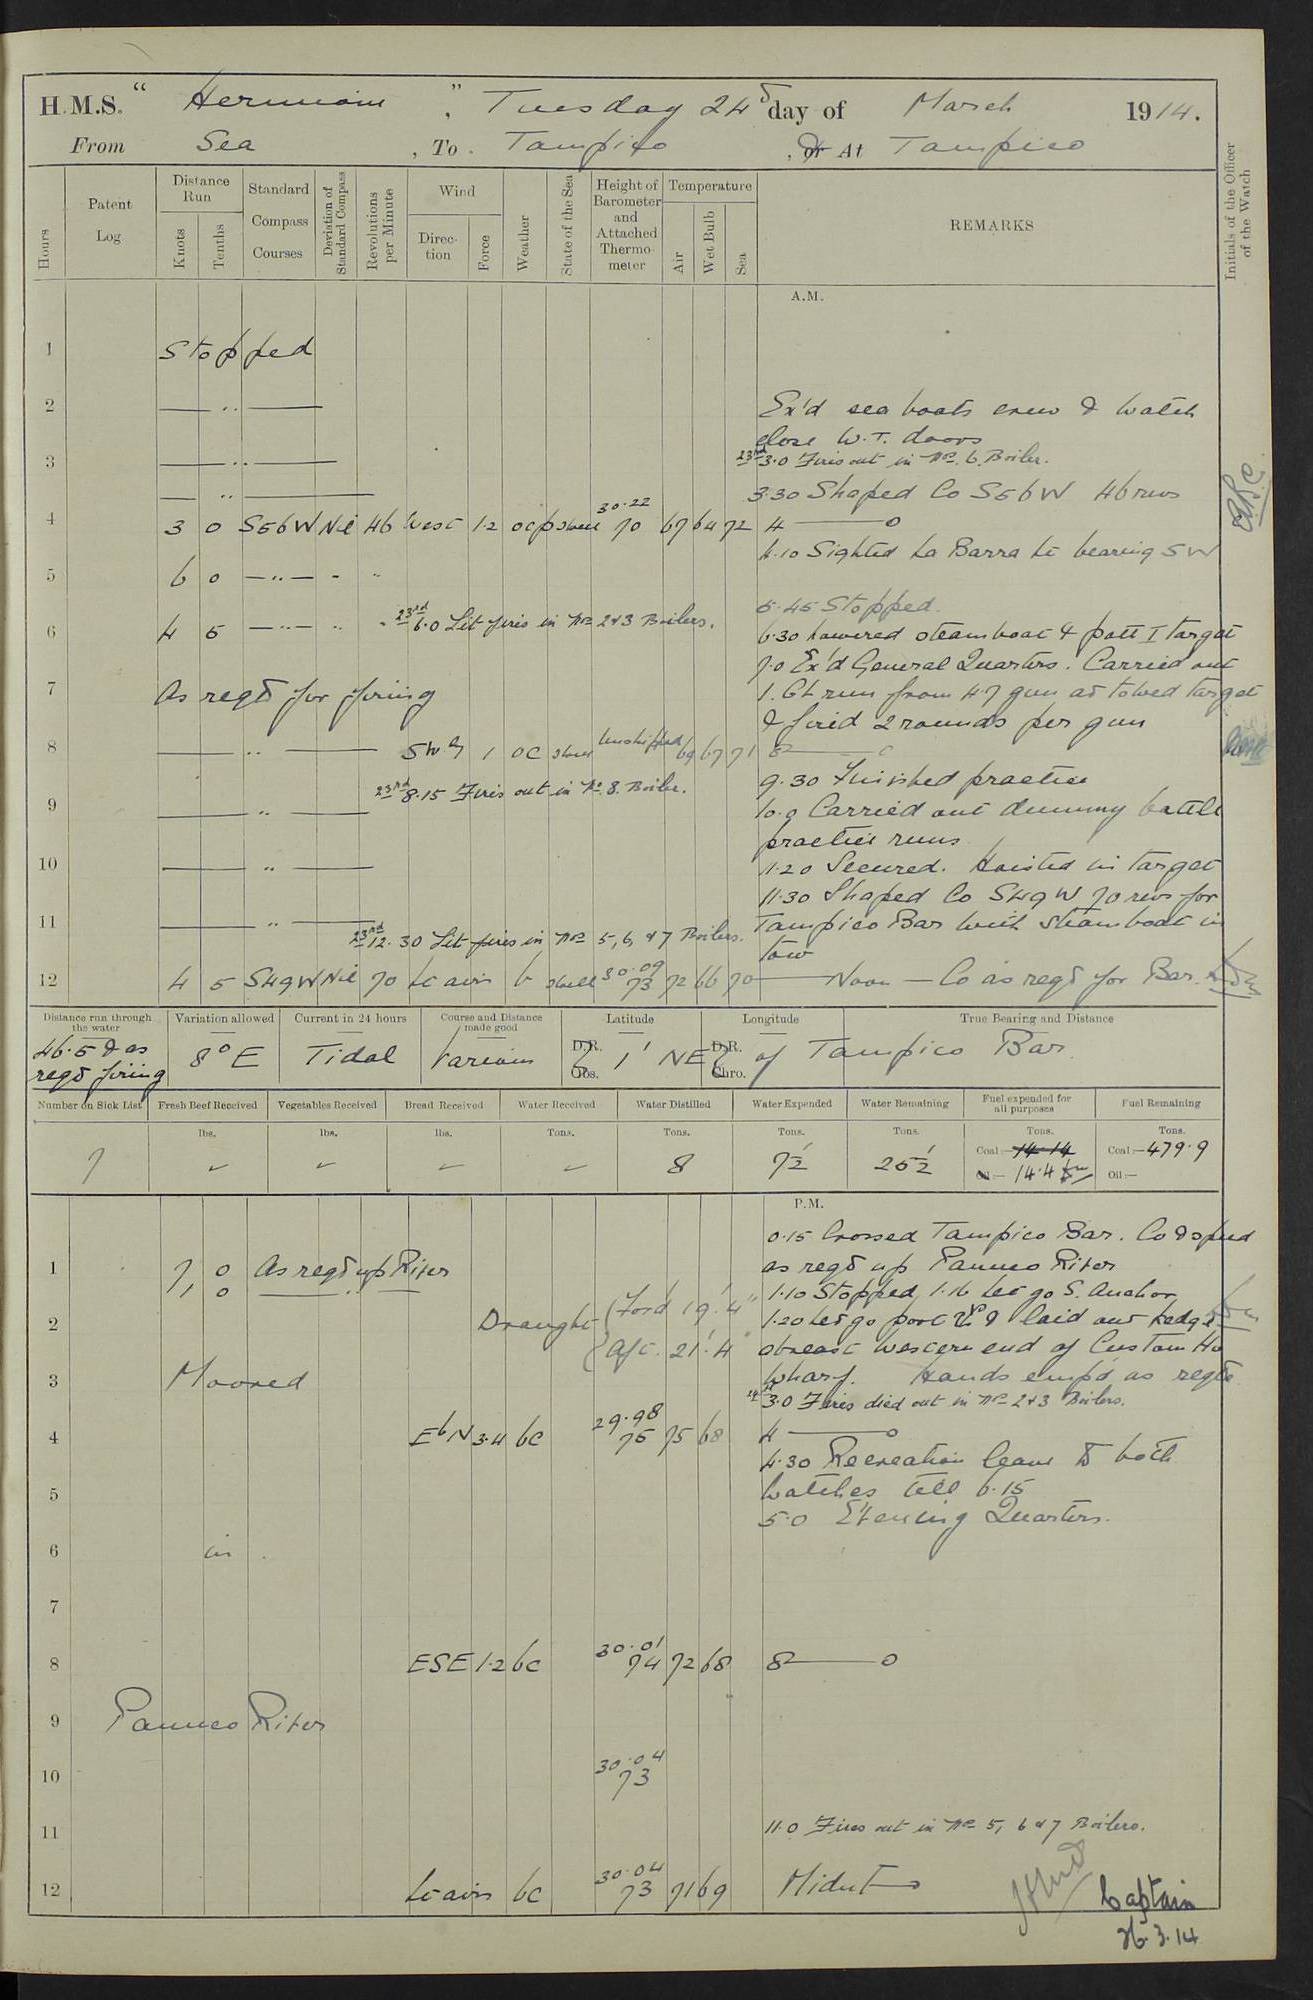 H.M.S. " Hermione ", Tuesday 24th day of March 1914.
From Sea , To Tampico , or At Tampico
Hours
Patent Log
Distance Run
Knots
Tenths
Standard Compass Courses
Deviation of Standard Compass
Revolutions per Minute
Wind
Direction
Force
Weather
State of the Sea
Height of Barometer and Attached Thermometer
Temperature
Air
Wet Bulb
Sea
REMARKS
Initials of the Officer of the Watch
A.M.
1 Stopped
2 — " — Ex'd sea boats crew & watch
close W.T. doors
3 — " — 23rd 3.0 Fires out in No. 6 Boiler.
— " — 3.30 Shaped Co S56W 46 revs
4 3 0 S56W Nil 46 West 1.2 ocp swell 30.22 70 67 64 72 4 ——— o
4.10 Sighted La Barra Lt bearing SW
5 6 0 — " — - "
5.45 Stopped.
6 4 5 — " — " " 23rd 6.0 Lit fires in Nos 2 & 3 Boilers. 6.30 Lowered steamboat & patt I target
7.0 Ex'd General Quarters. Carried out
7 As reqd for firing 1. GL run from 4.7 gun at towed target
& fired 2 rounds per gun
8 — " — SWly 1 oc swell Unshipped 69 67 71 8 ——— o
23rd 8.15 Fires out in No. 8. Boiler. 9.30 Finished practice
9 — " — 10.0 Carried out dummy battle
practice runs
10 — " — 11.20 Secured. Hoisted in target
11.30 Shaped Co S49W 70 revs for
11 — " — Tampico Bar with steamboat in
23rd 12.30 Lit fires in Nos 5, 6, & 7 Boilers. tow
12 4 5 S49W Nil 70 Lt airs b swell 30.09 73 72 66 70 — Noon — Co as reqd for Bar.
Distance run through the water
Variation allowed
Current in 24 hours
Course and Distance made good
Latitude
Longitude
True Bearing and Distance
46.5 & as reqd firing
8° E
Tidal
Various
D.R.
Obs.
1' NE
D.R.
Chro.
of Tampico Bar.
Number on Sick List
Fresh Beef Received
Vegetables Received
Bread Received
Water Received
Water Distilled
Water Expended
Water Remaining
Fuel expended for all purposes
Fuel Remaining
lbs. lbs. lbs. Tons. Tons. Tons. Tons. Tons. Tons.
7 8 7½ 25½ Coal:— 14.14 Coal:— 479.9
Oil:— 14.4 Oil:—
P.M.
0.15 Crossed Tampico Bar. Co & speed
1 7, 0 As reqd up River as reqd up Panuco River
0 1.10 Stopped, 1.16 Let go S. Anchor
2 Draught (Ford 19'.4" 1.20 Let go port & laid out kedge
(Aft. 21'.4" abreast western end of Custom Ho
3 Moored Wharf. Hands emp'd as reqte
24th 3.0 Fires died out in Nos 2 & 3 Boilers.
4 EbN 3.4 bc 29.98 75 75 68 4 ——— o
4.30 Recreation leave to both
5 watches till 6.15
5.0 Evening Quarters.
6 in
7
8 ESE 1.2 bc 30.01 74 72 68 8 ——— o
9 Panuco River
10 30.04 73
11 11.0 Fires out in Nos 5, 6 & 7 Boilers.
12 Lt airs bc 30.04 73 71 69 Midnt
Captain
26.3.14